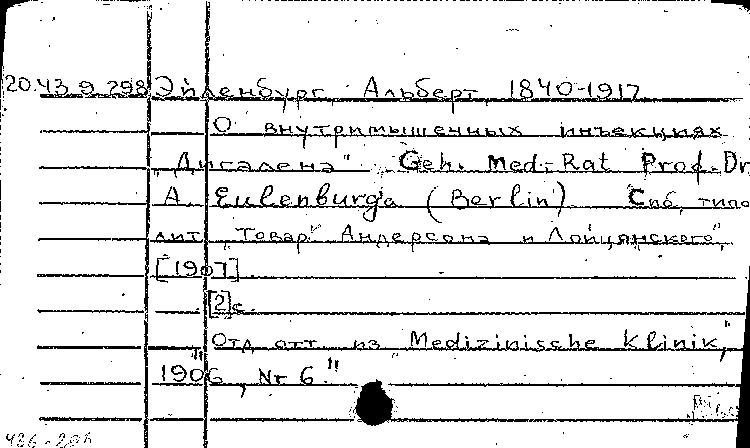 20.43.9.298 Эйленбург, Альберт, 1840-1917
О внутримышечных инъекциях
„Дигалена". Geh. Med.-Rat Prof. Dr
A. Eulenburg'a (Berlin) Спб, типо
лит. „Товар" Андерсона и Лойцянского",
[1907]
[2] с.
Отд. отт. из „Medizinische Klinik,"
1906, Nr 6."